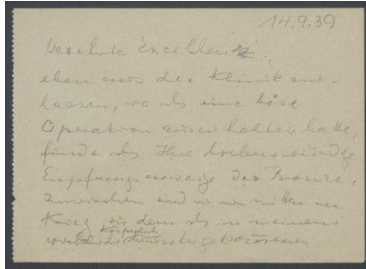 14.9.39
Verehrte Exzellenz,
eben aus der Klinik ent-
lassen, wo ich eine böse
Operation auszuhalten hatte,
finde ich Ihre liebenswürdige
Empfangsanzeige der Bronze.
Inzwischen sind wir nun mitten im
Krieg, dem ich in meinem